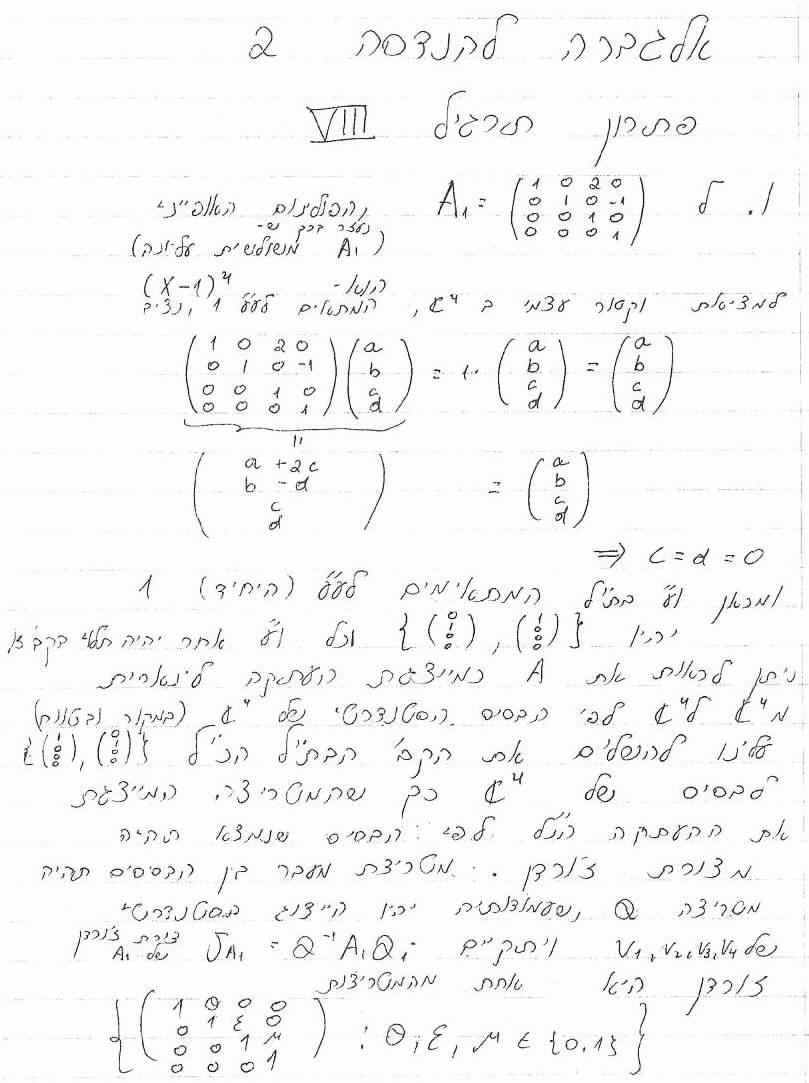 אלגברה להנדסה 2
פתרון תרגיל VIII
1. ל A₁ = ( 1 0 2 0 ; 0 1 0 -1 ; 0 0 1 0 ; 0 0 0 1 ) הפולינום האופייני
(נעזר בכך ש-
A₁ משולשית עליונה)
הוא - (X-1)⁴
למציאת וקטור עצמי ב ℂ⁴, המתאים לע"ע 1, נציב
( 1 0 2 0 ; 0 1 0 -1 ; 0 0 1 0 ; 0 0 0 1 ) ( a ; b ; c ; d ) = 1· ( a ; b ; c ; d ) = ( a ; b ; c ; d )
=
( a + 2c ; b - d ; c ; d ) = ( a ; b ; c ; d )
⇒ c = d = 0
ומכאן ו"ע בת"ל המתאימים לע"ע (היחיד) 1
יהיו { ( 0 ; 1 ; 0 ; 0 ) , ( 1 ; 0 ; 0 ; 0 ) } וכל ו"ע אחר יהיה תלוי בקב' זו
ניתן לראות את A כמייצגת העתקה לינארית
מ ℂ⁴ ל ℂ⁴ לפי הבסיס הסטנדרטי של ℂ⁴ (במקור ובטווח)
עלינו להשלים את הקב' הבת"ל הנ"ל { ( 1 ; 0 ; 0 ; 0 ) , ( 0 ; 1 ; 0 ; 0 ) }
לבסיס של ℂ⁴ כך שהמטריצה המייצגת
את ההעתקה הנ"ל לפי הבסיס שנמצא תהיה
מצורת ז'ורדן. מטריצת מעבר בין הבסיסים תהיה
מטריצה Q, שעמודותיה יהיו הייצוג בסטנדרטי
של v₁, v₂, v₃, v₄ ויתקיים J_A₁ = Q⁻¹A₁Q צורת ז'ורדן של A₁
ז'ורדן היא אחת מהמטריצות
{ ( 1 θ 0 0 ; 0 1 ε 0 ; 0 0 1 μ ; 0 0 0 1 ) : θ, ε, μ ∈ {0,1} }